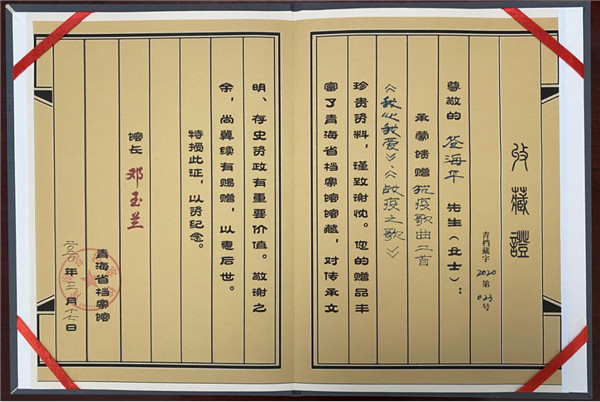 收藏證
青档藏字2020第023号
尊敬的 苍海平 先生(女士):
承蒙馈赠抗疫歌曲二首
《我心我爱》、《战疫之歌》
珍贵资料,谨致谢忱。您的赠品丰
富了青海省档案馆馆藏,对传承文
明、存史资政有重要价值。敬谢之
余,尚冀续有赐赠,以惠后世。
特授此证,以资纪念。
馆长 邓玉兰
青海省档案馆
二〇二〇年 月十七日